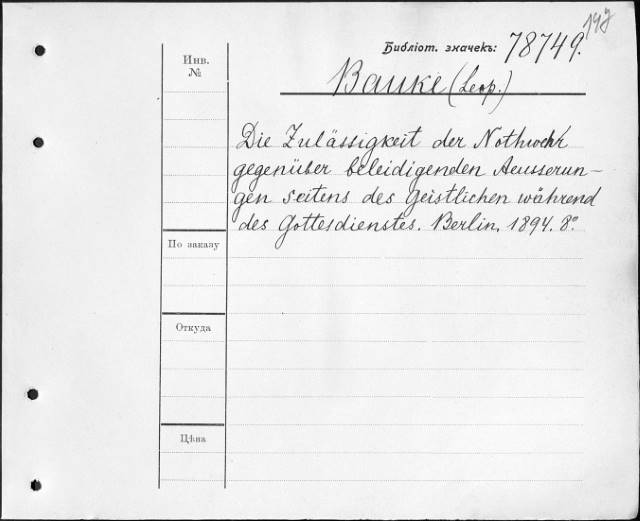 147
Библіот. значекъ: 78749.
Инв.
№
Bauke (Leop.)
Die Zulässigkeit der Nothwehr
gegenüber beleidigenden Aeusserun-
gen seitens des Geistlichen während
des Gottesdienstes. Berlin, 1894. 8º
По заказу
Откуда
Цѣна